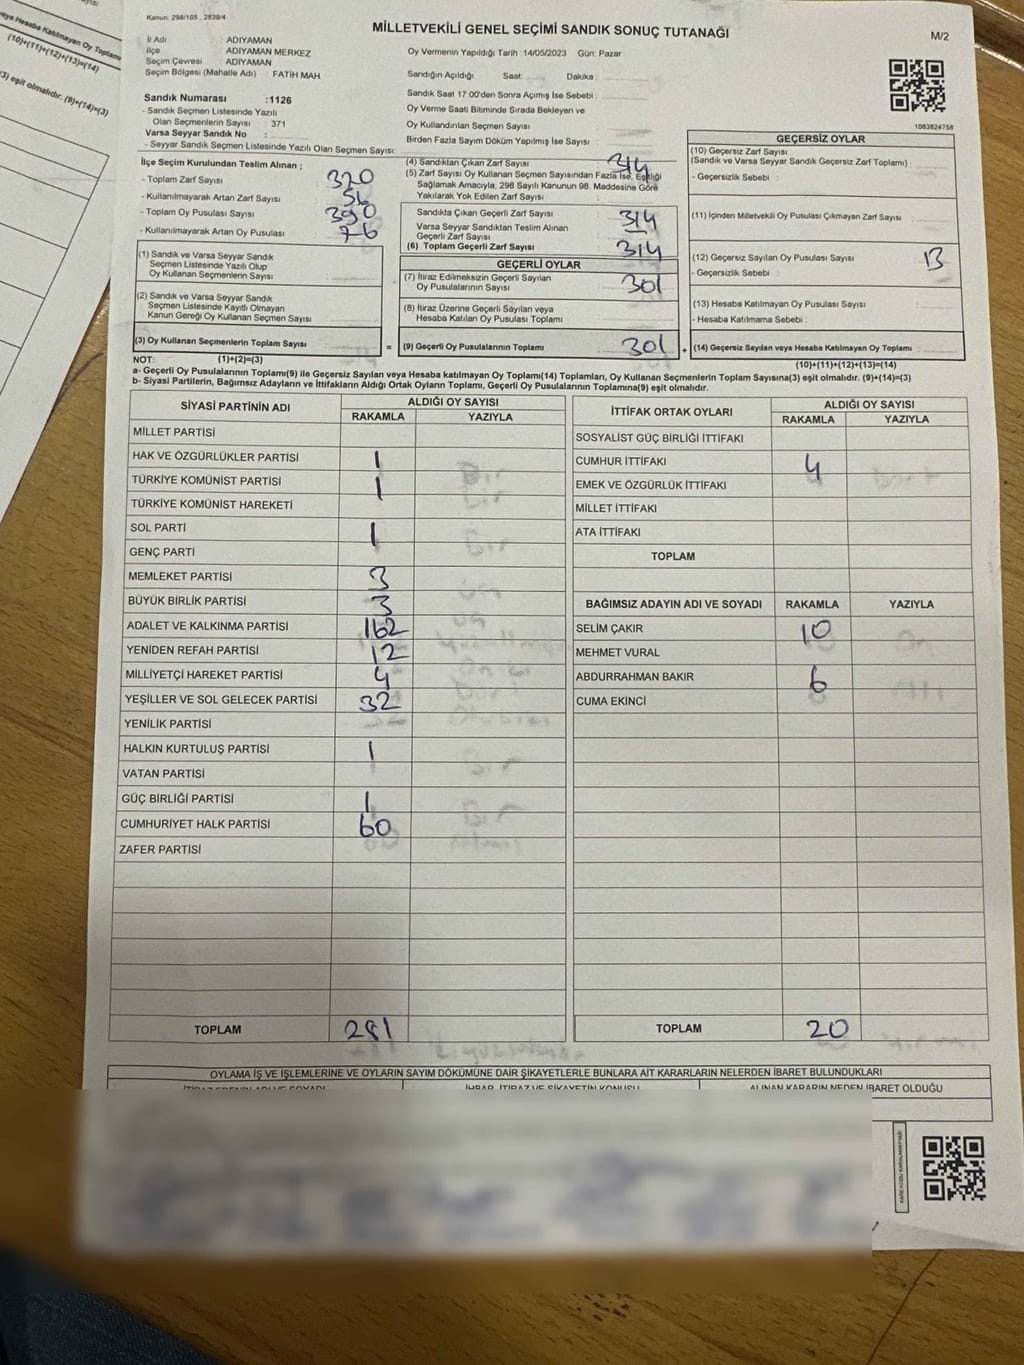 Kanun: 298/105 , 2839/4
MİLLETVEKİLİ GENEL SEÇİMİ SANDIK SONUÇ TUTANAĞI
M/2
İl Adı ADIYAMAN
İlçe ADIYAMAN MERKEZ
Seçim Çevresi ADIYAMAN
Seçim Bölgesi (Mahalle Adı) : FATİH MAH
Sandık Numarası :1126
- Sandık Seçmen Listesinde Yazılı
Olan Seçmenlerin Sayısı : 371
Varsa Seyyar Sandık No :
- Seyyar Sandık Seçmen Listesinde Yazılı Olan Seçmen Sayısı:
Oy Vermenin Yapıldığı Tarih 14/05/2023 Gün: Pazar
Sandığın Açıldığı Saat: Dakika :
Sandık Saat 17:00'den Sonra Açımış İse Sebebi :
Oy Verme Saati Bitiminde Sırada Bekleyen ve
Oy Kullandırılan Seçmen Sayısı :
Birden Fazla Sayım Döküm Yapılmış İse Sayısı :
1083824756
İlçe Seçim Kurulundan Teslim Alınan ;
- Toplam Zarf Sayısı 320
- Kullanılmayarak Artan Zarf Sayısı 56
- Toplam Oy Pusulası Sayısı 390
- Kullanılmayarak Artan Oy Pusulası 76
(1) Sandık ve Varsa Seyyar Sandık
Seçmen Listesinde Yazılı Olup
Oy Kullanan Seçmenlerin Sayısı
(2) Sandık ve Varsa Seyyar Sandık
Seçmen Listesinde Kayıtlı Olmayan
Kanun Gereği Oy Kullanan Seçmen Sayısı
(3) Oy Kullanan Seçmenlerin Toplam Sayısı =
(4) Sandıktan Çıkan Zarf Sayısı 314
(5) Zarf Sayısı Oy Kullanan Seçmen Sayısından Fazla İse, Eşitliği
Sağlamak Amacıyla, 298 Sayılı Kanunun 98. Maddesine Göre
Yakılarak Yok Edilen Zarf Sayısı
Sandıkta Çıkan Geçerli Zarf Sayısı 314
Varsa Seyyar Sandıktan Teslim Alınan
Geçerli Zarf Sayısı
(6) Toplam Geçerli Zarf Sayısı 314
GEÇERLİ OYLAR
(7) İtiraz Edilmeksizin Geçerli Sayılan
Oy Pusulalarının Sayısı 301
(8) İtiraz Üzerine Geçerli Sayılan veya
Hesaba Katılan Oy Pusulası Toplamı
(9) Geçerli Oy Pusulalarının Toplamı 301 +
GEÇERSİZ OYLAR
(10) Geçersiz Zarf Sayısı
(Sandık ve Varsa Seyyar Sandık Geçersiz Zarf Toplamı)
- Geçersizlik Sebebi :
(11) İçinden Milletvekili Oy Pusulası Çıkmayan Zarf Sayısı
(12) Geçersiz Sayılan Oy Pusulası Sayısı 13
- Geçersizlik Sebebi :
(13) Hesaba Katılmayan Oy Pusulası Sayısı
- Hesaba Katılmama Sebebi :
(14) Geçersiz Sayılan veya Hesaba Katılmayan Oy Pusulası Toplamı
NOT: (1)+(2)=(3) (10)+(11)+(12)+(13)=(14)
a- Geçerli Oy Pusulalarının Toplamı(9) ile Geçersiz Sayılan veya Hesaba katılmayan Oy Pusulası Toplamı(14) Toplamları, Oy Kullanan Seçmenlerin Toplam Sayısına(3) eşit olmalıdır. (9)+(14)=(3)
b- Siyasi Partilerin, Bağımsız Adayların ve İttifakların Aldığı Ortak Oyların Toplamı, Geçerli Oy Pusulalarının Toplamına(9) eşit olmalıdır.
SİYASİ PARTİNİN ADI ALDIĞI OY SAYISI
RAKAMLA YAZIYLA
MİLLET PARTİSİ
HAK VE ÖZGÜRLÜKLER PARTİSİ 1
TÜRKİYE KOMÜNİST PARTİSİ 1
TÜRKİYE KOMÜNİST HAREKETİ
SOL PARTİ 1
GENÇ PARTİ
MEMLEKET PARTİSİ 3
BÜYÜK BİRLİK PARTİSİ 3
ADALET VE KALKINMA PARTİSİ 162
YENİDEN REFAH PARTİSİ 12
MİLLİYETÇİ HAREKET PARTİSİ 4
YEŞİLLER VE SOL GELECEK PARTİSİ 32
YENİLİK PARTİSİ
HALKIN KURTULUŞ PARTİSİ 1
VATAN PARTİSİ
GÜÇ BİRLİĞİ PARTİSİ 1
CUMHURİYET HALK PARTİSİ 60
ZAFER PARTİSİ
TOPLAM 281
İTTİFAK ORTAK OYLARI ALDIĞI OY SAYISI
RAKAMLA YAZIYLA
SOSYALİST GÜÇ BİRLİĞİ İTTİFAKI
CUMHUR İTTİFAKI 4
EMEK VE ÖZGÜRLÜK İTTİFAKI
MİLLET İTTİFAKI
ATA İTTİFAKI
TOPLAM
BAĞIMSIZ ADAYIN ADI VE SOYADI RAKAMLA YAZIYLA
SELİM ÇAKIR 10
MEHMET VURAL
ABDURRAHMAN BAKIR 6
CUMA EKİNCİ
TOPLAM 20
OYLAMA İŞ VE İŞLEMLERİNE VE OYLARIN SAYIM DÖKÜMÜNE DAİR ŞİKAYETLERLE BUNLARA AİT KARARLARIN NELERDEN İBARET BULUNDUKLARI
İHBAR, İTİRAZ VE ŞİKAYETİN KONUSU ALINAN KARARIN NEDEN İBARET OLDUĞU